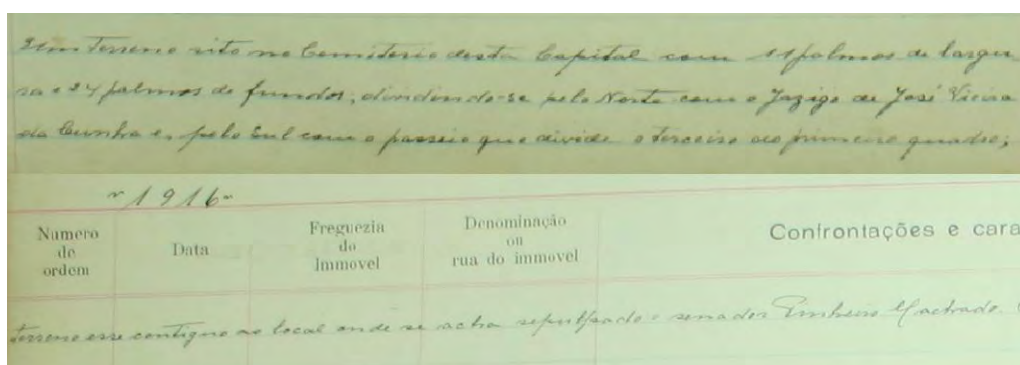 Um Terreno sito no Cemiterio desta Capital com 11 palmos de largu
ra e 24 palmos de fundos, dividindo-se pelo Norte com o Jazigo de José Vieira
da Cunha e, pelo Sul com o passeio que divide o terceiro do primeiro quadro;
1916
Numero de ordem
Data
Freguezia do Immovel
Denominação ou rua do immovel
Confrontações e cara
terreno esse contiguo ao local onde se acha sepultado o senador Pinheiro Machado.